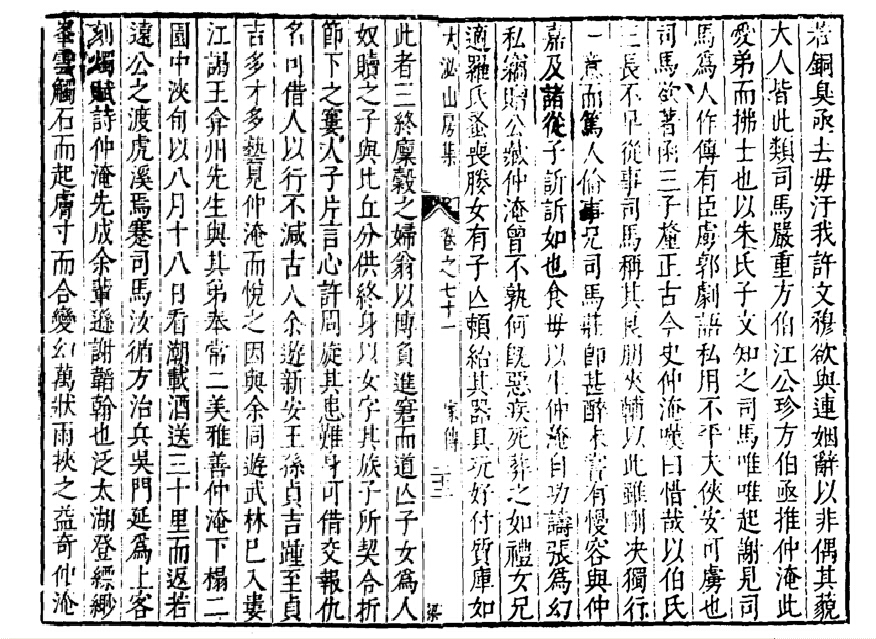 若銅臭丞去毋汙我許文穆欲與連姻辭以非偶其藐
大人皆此類司馬嚴重方伯江公珍方伯亟推仲淹此
愛弟而拂士也以朱氏子文知之司馬唯唯起謝見司
馬為人作傳有臣虜郭劇語私用不平大俠安可虜也
司馬欲著函三子釐正古今史仲淹嘆曰惜哉以伯氏
三長不早從事司馬稱其良朋夾輔以此雖剛決獨行
一意而篤人倫事兄司馬莊師甚醉未嘗有慢容與仲
嘉及諸從子訢訢如也食毋以生仲淹自功譸張為幻
私竊貽公藏仲淹曾不執何既惡疾死葬之如禮女兄
適羅氏蚤喪媵女有子亡賴紿其器具玩好付質庫如
大泌山房集 卷之七十一 家傳 二十三 梁
此者三終廩穀之婦翁以博負進窘而道亡子女為人
奴贖之子與比丘分供終身以女字其族子所契合折
節下之窶人子片言心許周旋其患難身可借交報仇
名可借人以行不減古人余遊新安王孫貞吉踵至貞
吉多才多藝見仲淹而悅之因與余同遊武林已入婁
江謁王弇州先生與其弟奉常二美雅善仲淹下榻二
園中浹旬以八月十八日看潮載酒送三十里而返若
遠公之渡虎溪焉蹇司馬汝循方治兵吳門延為上客
刻燭賦詩仲淹先成余輩遜謝韜翰也泛太湖登縹緲
峯雲觸石而起膚寸而合變幻萬狀雨挾之益奇仲淹